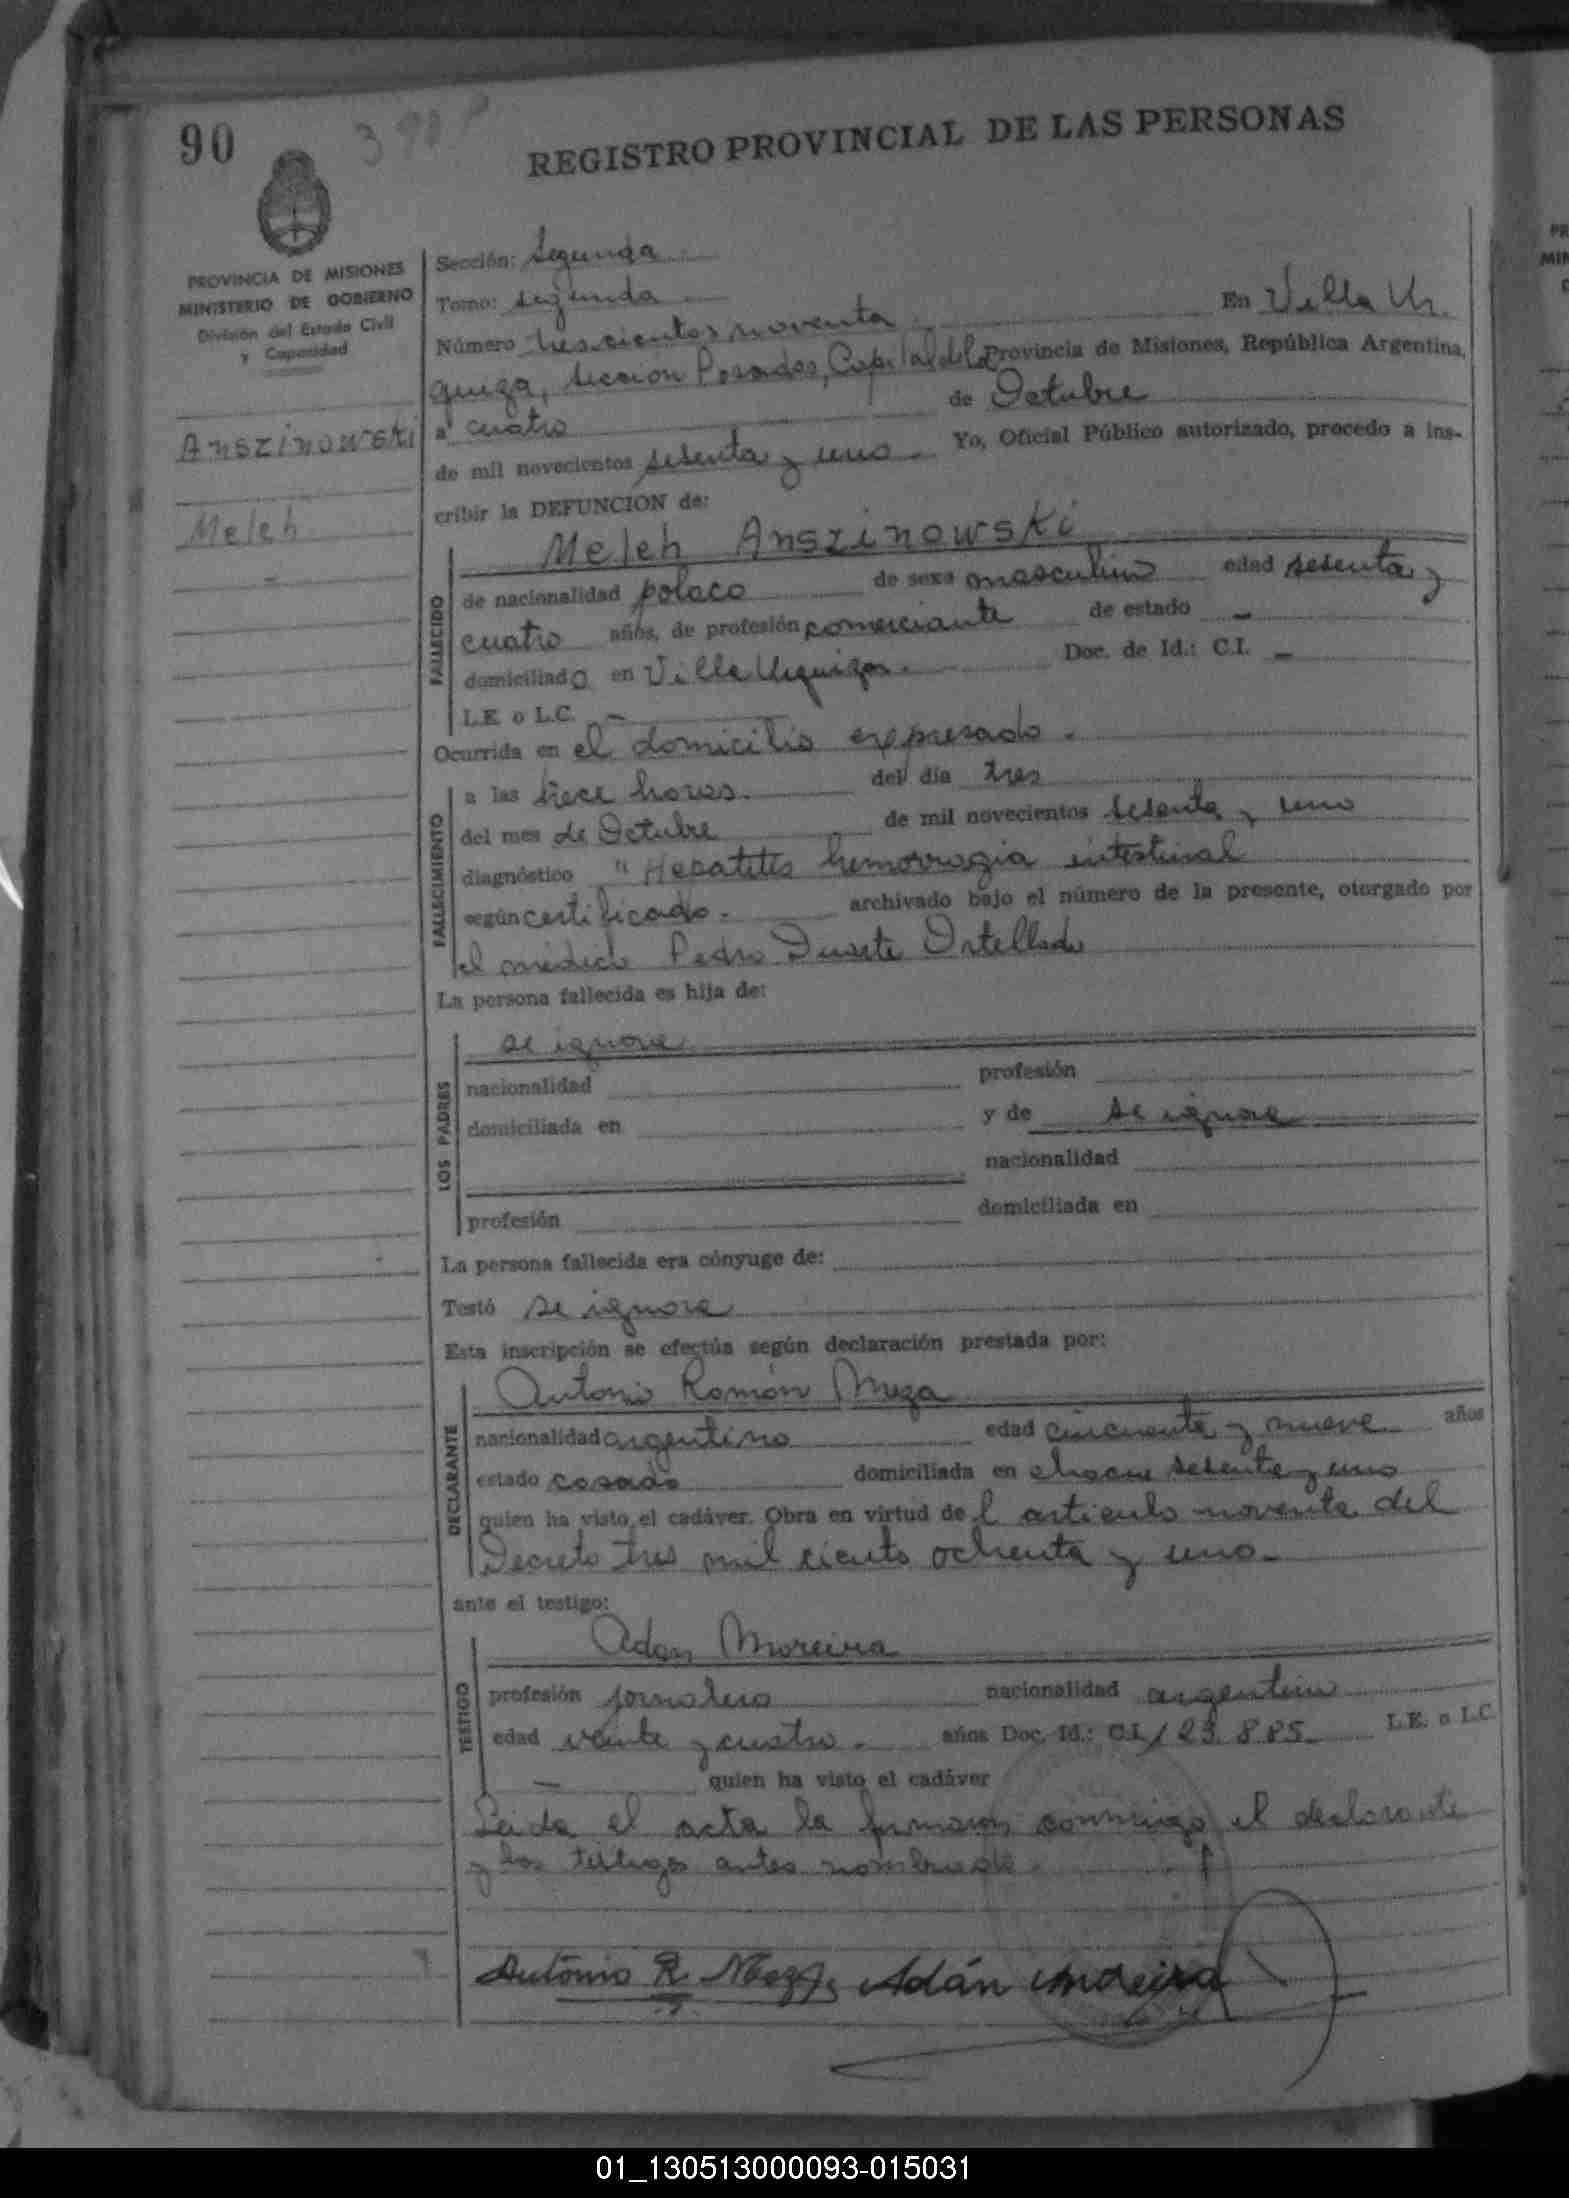 90
REGISTRO PROVINCIAL DE LAS PERSONAS
PROVINCIA DE MISIONES
MINISTERIO DE GOBIERNO
División del Estado Civil
y Capacidad
Anszinowski
Meleh
Sección: Segunda
Tomo: segunda
Número trescientos noventa En Villa Ur.
quiza, sección Posadas, Capital de la Provincia de Misiones, República Argentina,
a cuatro de Octubre
de mil novecientos sesenta y uno. Yo, Oficial Público autorizado, procedo a ins-
cribir la DEFUNCION de:
FALLECIDO
Meleh Anszinowski
de nacionalidad polaco de sexo masculino edad sesenta y
cuatro años, de profesión comerciante de estado —
domiciliado en Villa Urquiza. Doc. de Id.: C.I. —
L.E. o L.C. —
Ocurrida en el domicilio expresado.
FALLECIMIENTO
a las trece horas. del día tres
del mes de Octubre de mil novecientos sesenta y uno
diagnóstico "Hepatitis hemorragia intestinal
según certificado. archivado bajo el número de la presente, otorgado por
el médico Pedro Duarte Ortellado
La persona fallecida es hija de:
LOS PADRES
se ignora
nacionalidad profesión
domiciliada en y de se ignora
nacionalidad
profesión domiciliada en
La persona fallecida era cónyuge de:
Testó se ignora
Esta inscripción se efectúa según declaración prestada por:
DECLARANTE
Antonio Román Meza
nacionalidad argentino edad cincuenta y nueve años
estado casado domiciliada en chacra sesenta y uno
quien ha visto el cadáver. Obra en virtud del artículo noventa del
Decreto tres mil ciento ochenta y uno.
ante el testigo:
TESTIGO
Adan Moreira
profesión jornalero nacionalidad argentino
edad veinte y cuatro. años Doc. Id.: C.I. 123.885. L.E. o L.C.
— quien ha visto el cadáver
Leida el acta la firmaron conmigo el declarante
y los testigos antes nombrado.
Antonio R. Meza. Adán Moreira
01_130513000093-015031